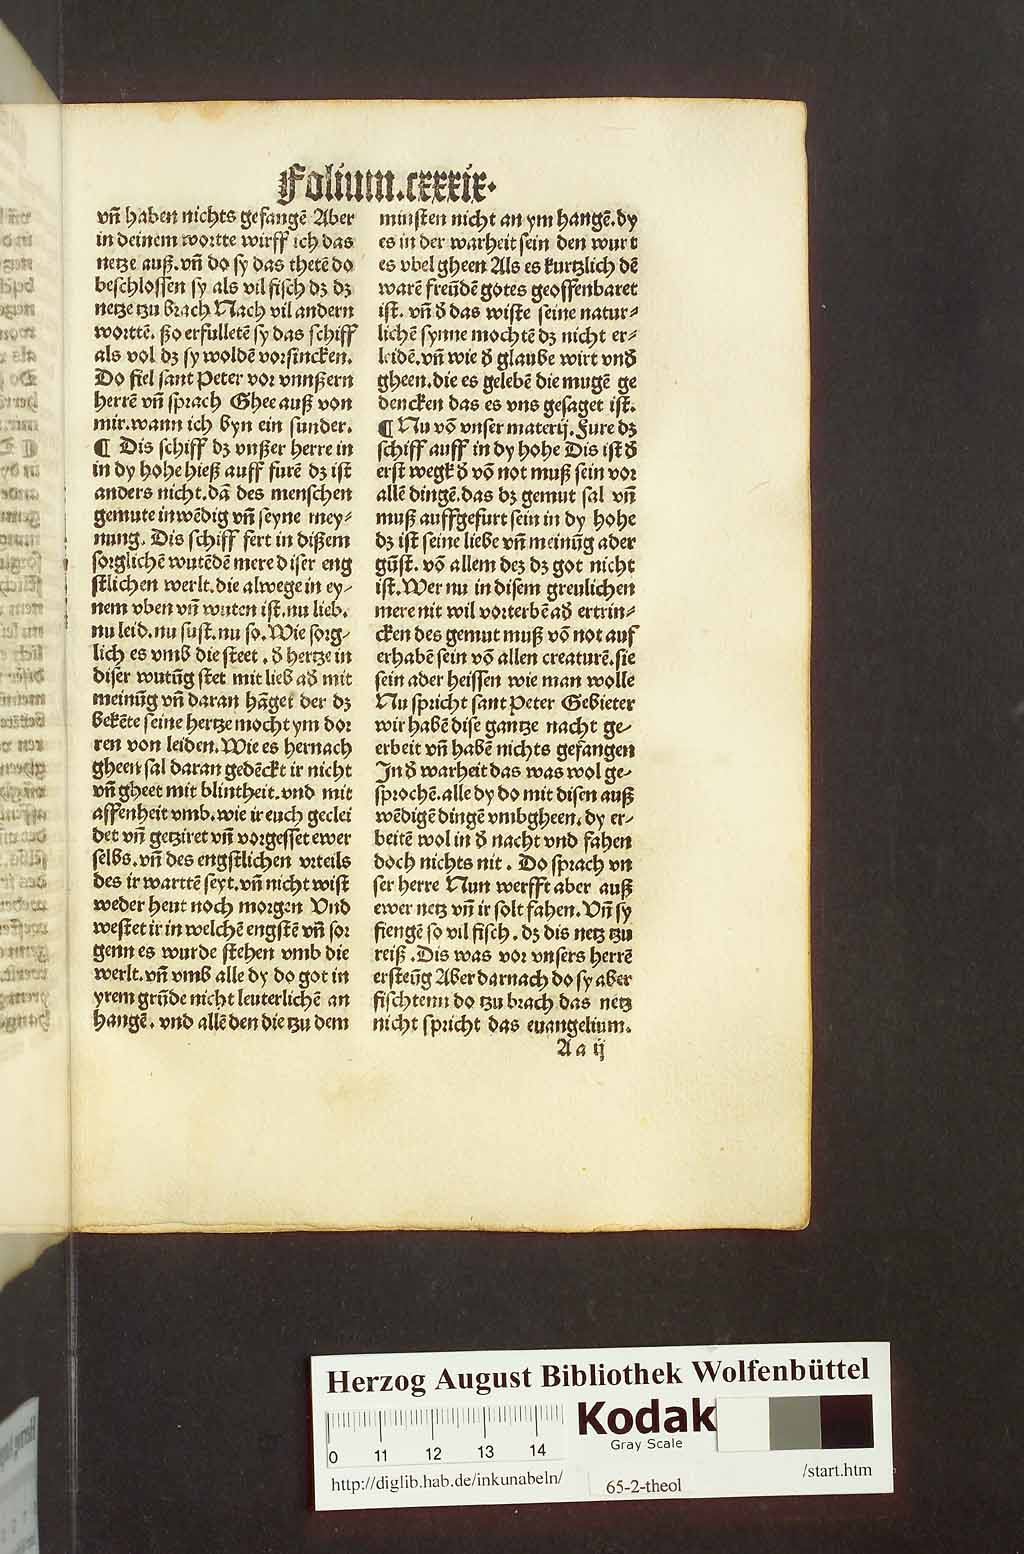 Folium.cxxxix.
vñ haben nichts gefangẽ Aber
in deinem wortte wirff ich das
netze auß.vñ do sy das thetẽ do
beschlossen sy als vil fisch dz dz
netze tzu brach Nach vil andern
worttẽ. ßo erfulletẽ sy das schiff
als vol dz sy woldẽ vorsincken.
Do fiel sant Peter vor vnnßern
herrẽ vñ sprach Ghee auß von
mir.wann ich byn ein sunder.
¶ Dis schiff dz vnßer herre in
in dy hohe hieß auff furẽ dz ist
anders nicht.dã des menschen
gemute inwẽdig vñ seyne mey⸗
nung. Dis schiff fert in dißem
sorglichẽ wutẽdẽ mere diser eng
stlichen werlt.die alwege in ey⸗
nem vben vñ wuten ist.nu lieb.
nu leid.nu sust.nu so.Wie sorg⸗
lich es vmb die steet . d̕ hertze in
diser wutũg stet mit lieb ad̕ mit
meinũg vñ daran hãget der dz
bekẽte seine hertze mocht ym dor
ren von leiden.Wie es hernach
gheen sal daran gedẽckt ir nicht
vñ gheet mit blintheit.vnd mit
affenheit vmb.wie ir euch geclei
det vñ getziret vñ vorgesset ewer
selbs.vñ des engstlichen vrteils
des ir warttẽ seyt.vñ nicht wist
weder heut noch morgen Vnd
westet ir in welchẽ engstẽ vñ sor
genn es wurde stehen vmb die
werlt.vñ vmb alle dy do got in
yrem grũde nicht leuterlichẽ an
hangẽ. vnd allẽ den die tzu dem
minsten nicht an ym hangẽ.dy
es in der warheit sein den wurt
es vbel gheen Als es kurtzlich dẽ
warẽ freũdẽ gotes geoffenbaret
ist. vñ d̕ das wiste seine natur⸗
lichẽ synne mochtẽ dz nicht er⸗
leidẽ.vñ wie d̕ glaube wirt vnd̕
gheen.die es gelebẽ die mugẽ ge
dencken das es vns gesaget ist.
¶ Nu võ vnser materij.Fure dz
schiff auff in dy hohe Dis ist d̕
erst wegk d̕ võ not muß sein vor
allẽ dingẽ.das dz gemut sal vñ
muß auffgefurt sein in dy hohe
dz ist seine liebe vñ meinũg ader
gũst. võ allem dez dz got nicht
ist.Wer nu in disem greulichen
mere nit wil vorterbẽ ad̕ ertrin⸗
cken des gemut muß võ not auf
erhabẽ sein võ allen creaturẽ.sie
sein ader heissen wie man wolle
Nu spricht sant Peter Gebieter
wir habẽ dise gantze nacht ge⸗
erbeit vñ habẽ nichts gefangen
In d̕ warheit das was wol ge⸗
sprochẽ.alle dy do mit disen auß
wẽdigẽ dingẽ vmbgheen.dy er⸗
beitẽ wol in d̕ nacht vnd fahen
doch nichts nit . Do sprach vn
ser herre Nun werfft aber auß
ewer netz vñ ir solt fahen.Vñ sy
fiengẽ so vil fisch.dz dis netz tzu
reiß .Dis was vor vnsers herrẽ
ersteũg Aber darnach do sy aber
fischtenn do tzu brach das netz
nicht spricht das euangelium.
A a ij
Herzog August Bibliothek Wolfenbüttel
Kodak
Gray Scale
0 11 12 13 14
http://diglib.hab.de/inkunabeln/
65-2-theol
/start.htm